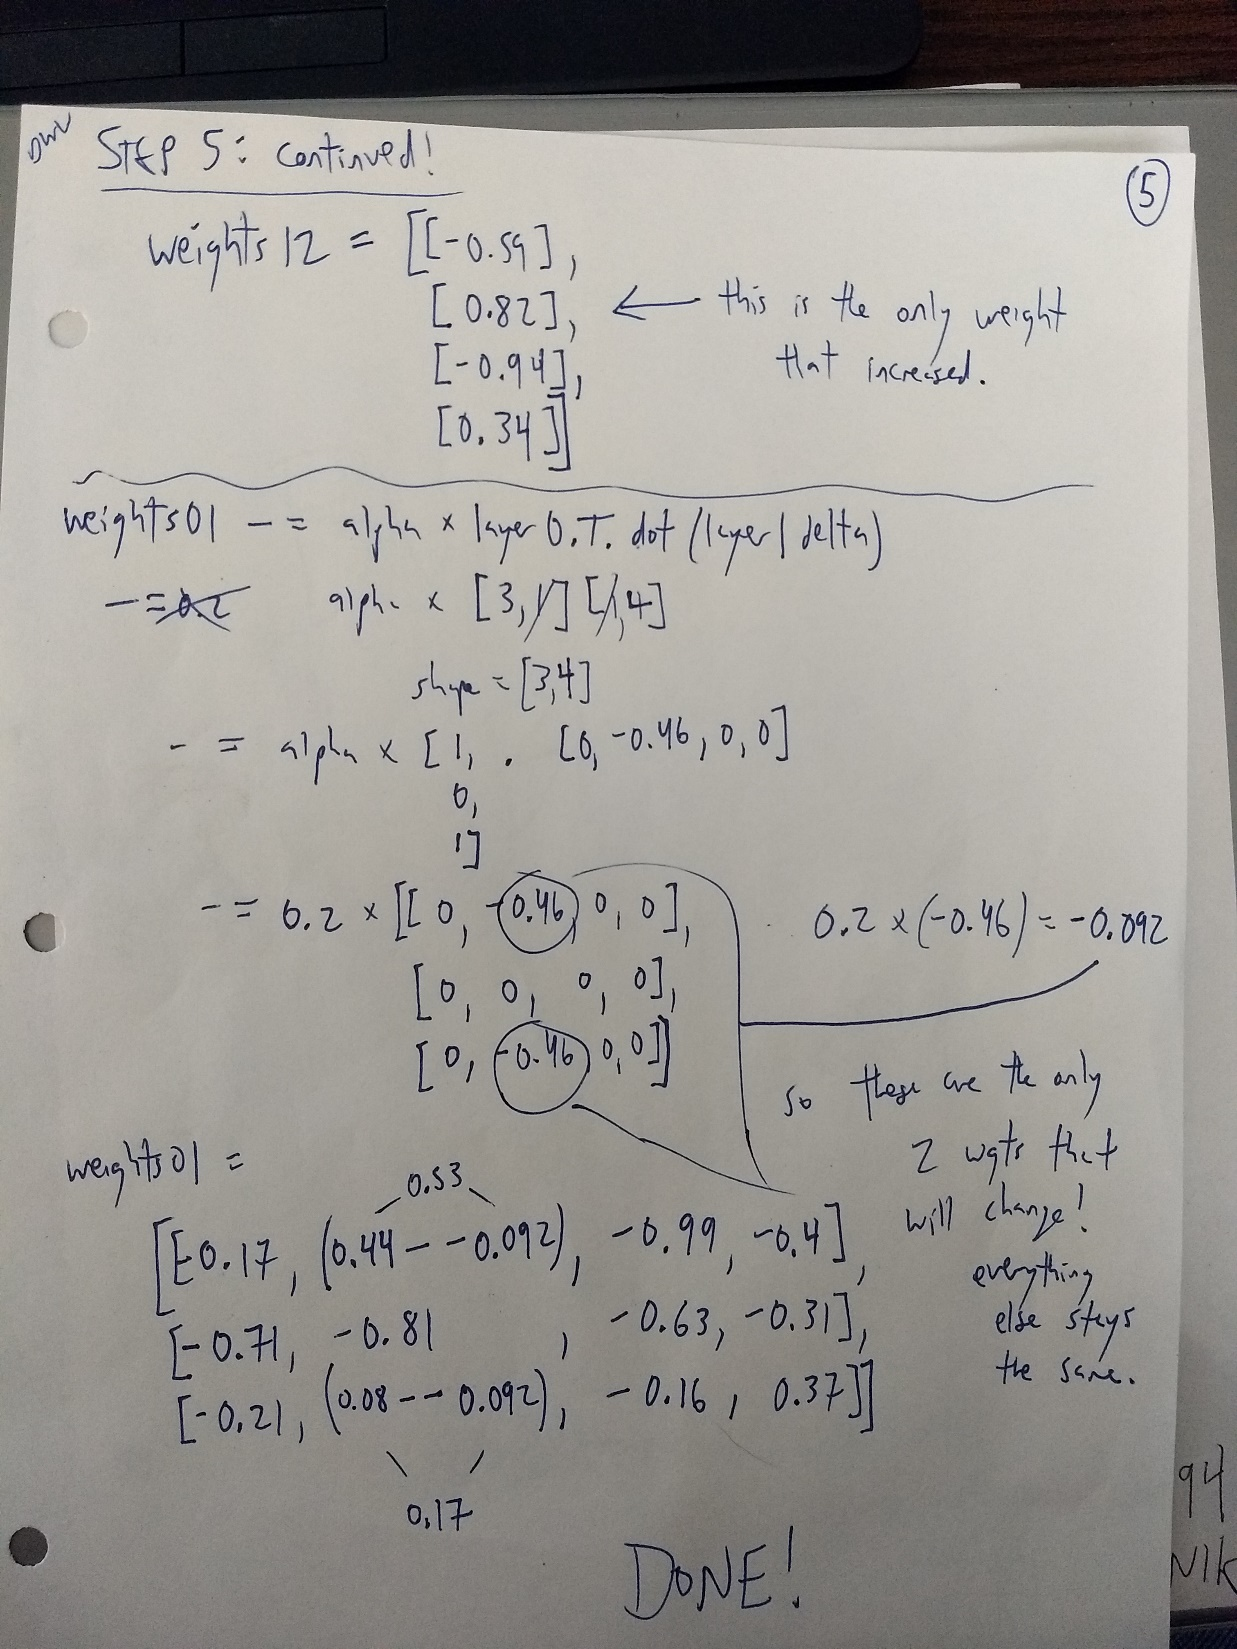 DWV
STEP 5: continued!
5
weights 12 = [[-0.59],
[0.82], ← this is the only weight
that increased.
[-0.94],
[0.34]]
weights01 -= alpha x layer0.T.dot(layer1delta)
-= 0.2 alpha x [3,1][1,4]
shape = [3,4]
-= alpha x [1, . [0, -0.46, 0, 0]
0,
1]
-= 0.2 x [[0, -0.46, 0, 0],
0.2 x (-0.46) = -0.092
[0, 0, 0, 0],
[0, -0.46, 0, 0]]
so these are the only
2 wgts that
will change!
everything
else stays
the same.
weights01 =
0.53
[[-0.17, (0.44 - -0.092), -0.99, -0.4],
[-0.71, -0.81, -0.63, -0.31],
[-0.21, (0.08 - -0.092), -0.16, 0.37]]
0.17
DONE!
94
NIK